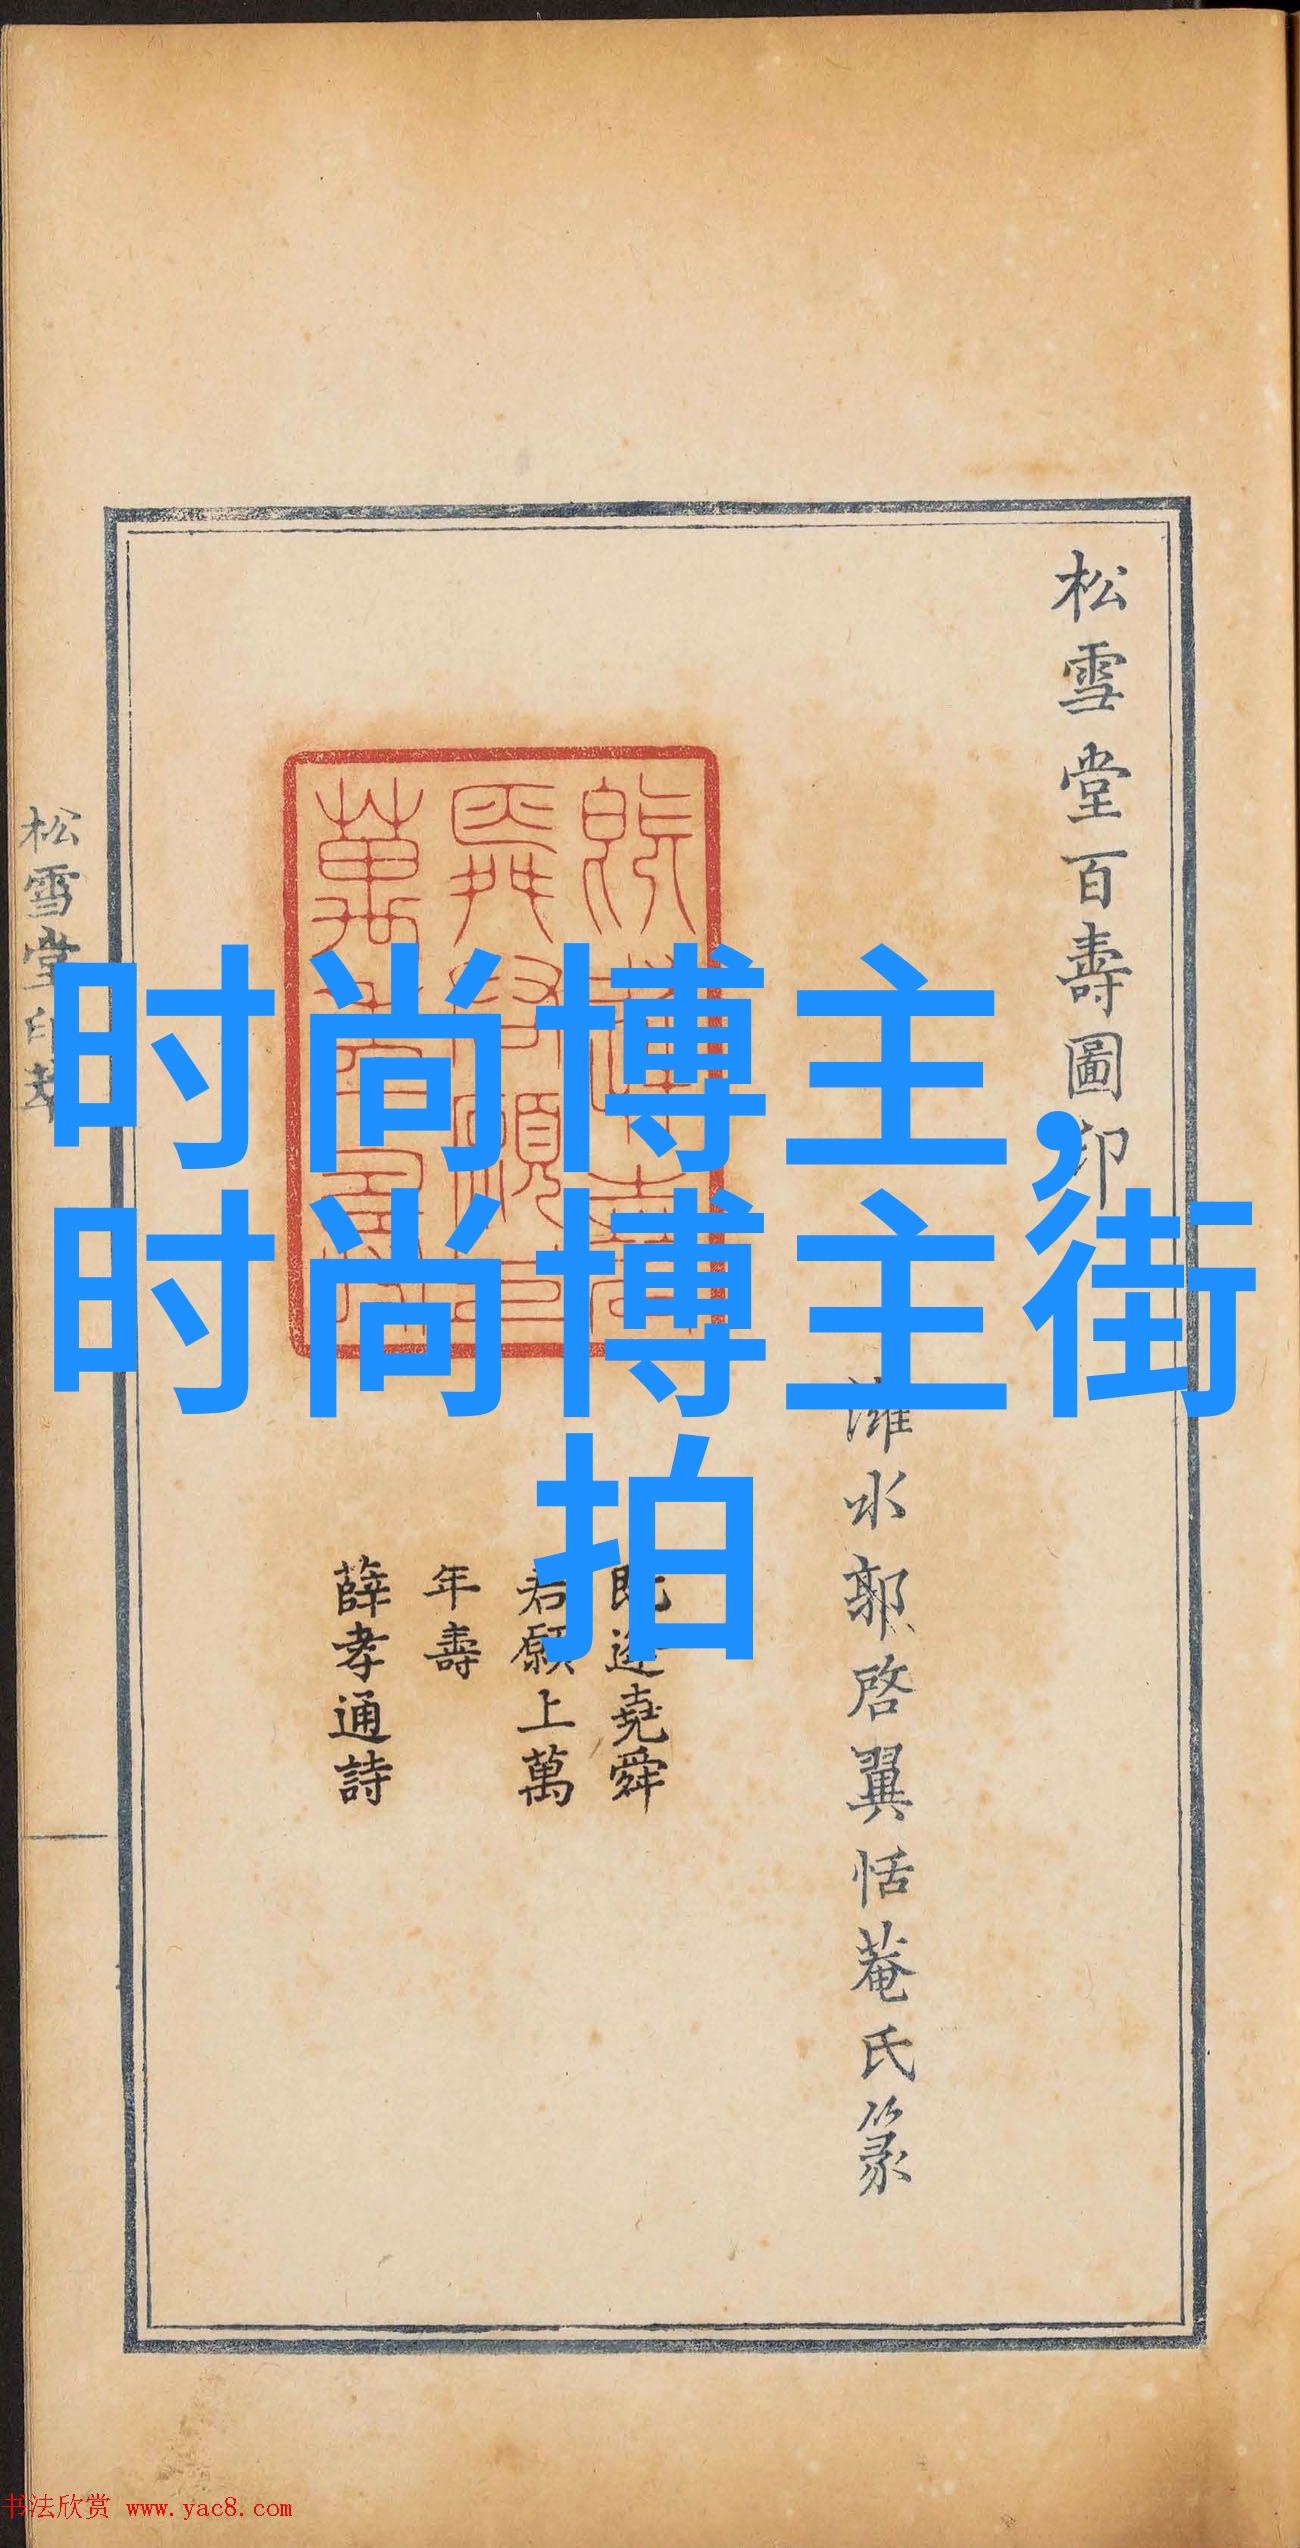 松雪堂百壽圖印
濰水郭啓翼恬菴氏篆
既逢堯舜
君願上萬
年壽
薛孝通詩
松雪堂印萃
时尚博主,
时尚博主街
拍
书法欣赏 www.yac8.com